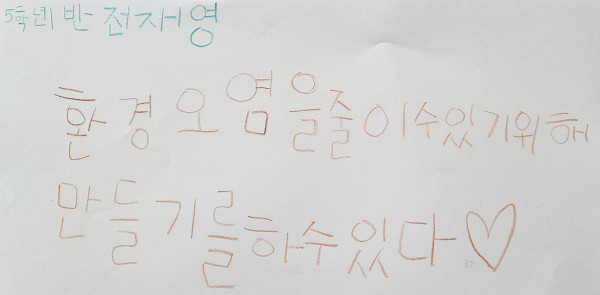 5학년1반 전재영
환경오염을줄이수있기위해
만들기를하수있다♡